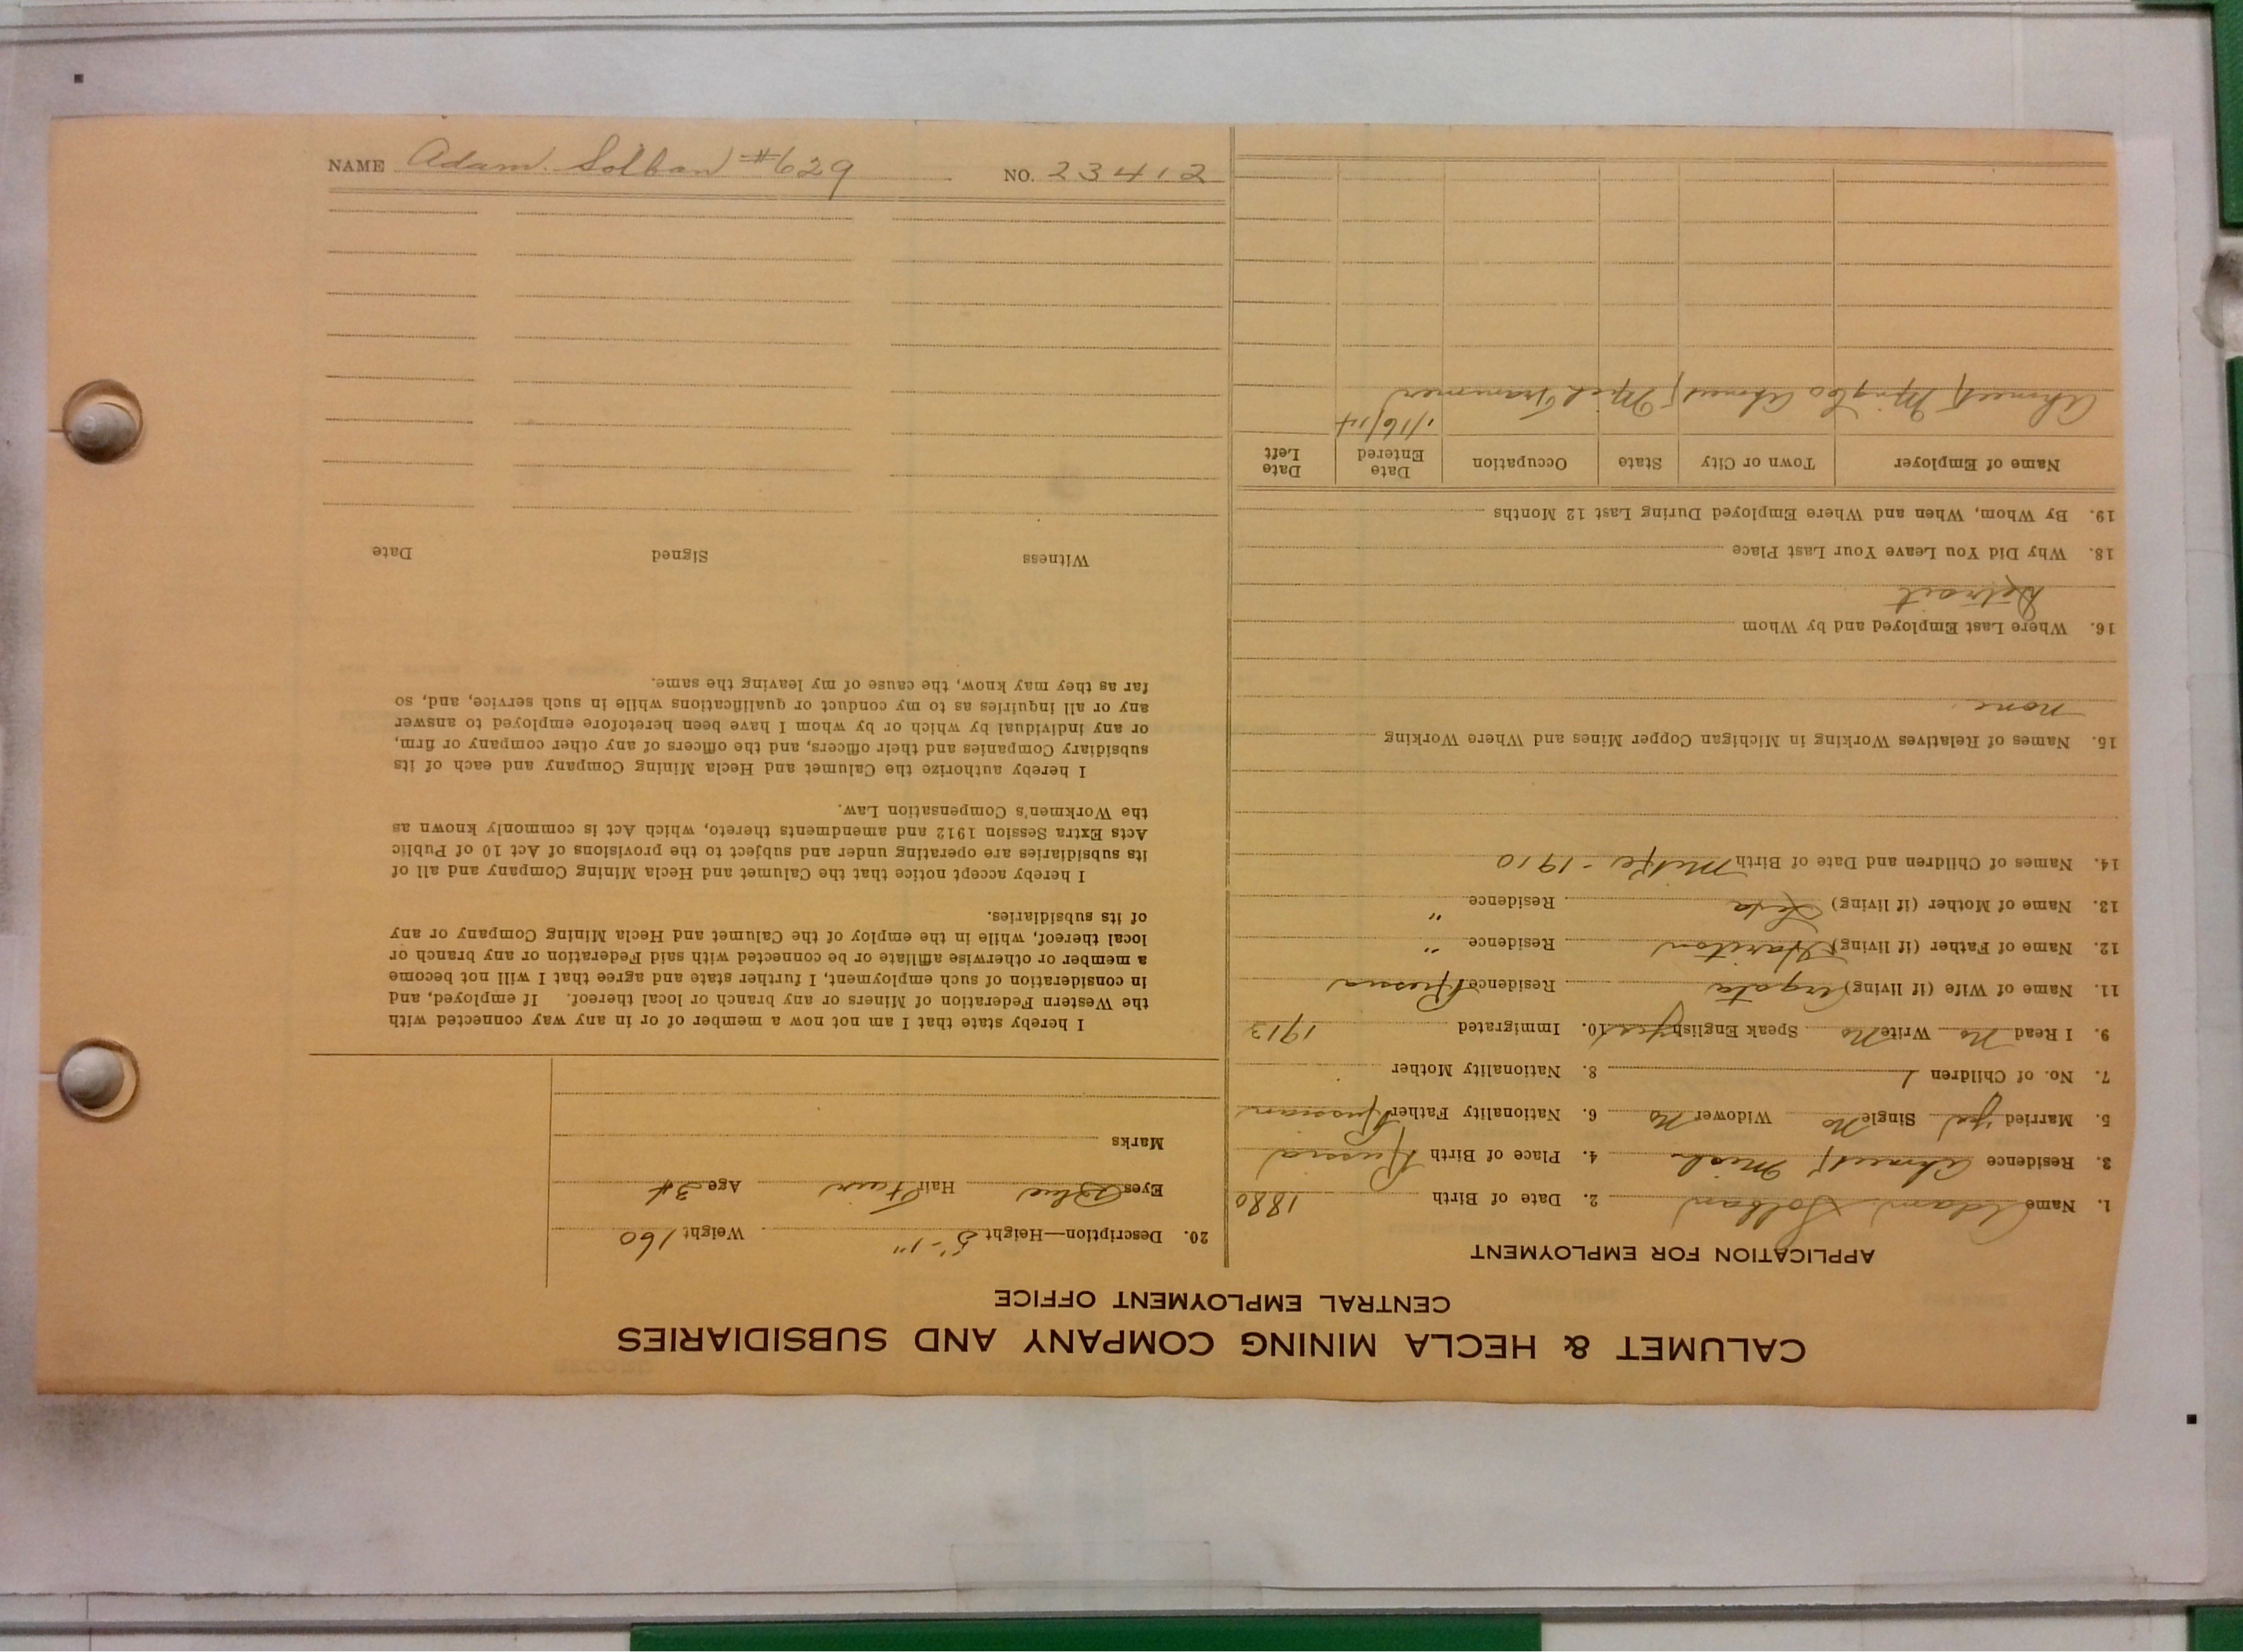 CALUMET & HECLA MINING COMPANY AND SUBSIDIARIES
CENTRAL EMPLOYMENT OFFICE
APPLICATION FOR EMPLOYMENT
1. Name Adam Solban 2. Date of Birth 1880
3. Residence Ahmeek Mich 4. Place of Birth Russia
5. Married yes Single No Widower No 6. Nationality Father Russian
7. No. of Children 1 8. Nationality Mother
9. I Read No Write No Speak English yes 10. Immigrated 1913
11. Name of Wife (if living) Residence Russia
12. Name of Father (if living) Hariton Residence "
13. Name of Mother (if living) Residence "
14. Names of Children and Date of Birth - 1910
15. Names of Relatives Working in Michigan Copper Mines and Where Working
none
16. Where Last Employed and by Whom
Detroit
18. Why Did You Leave Your Last Place
19. By Whom, When and Where Employed During Last 12 Months
Name of Employer Town or City State Occupation Date Entered Date Left
Ahmeek Mng Co Ahmeek Mich Trammer 1/16/14
20. Description—Height 5'-1" Weight 160
Eyes Blue Hair Fair Age 34
Marks
I hereby state that I am not now a member of or in any way connected with
the Western Federation of Miners or any branch or local thereof. If employed, and
in consideration of such employment, I further state and agree that I will not become
a member or otherwise affiliate or be connected with said Federation or any branch or
local thereof, while in the employ of the Calumet and Hecla Mining Company or any
of its subsidiaries.
I hereby accept notice that the Calumet and Hecla Mining Company and all of
its subsidiaries are operating under and subject to the provisions of Act 10 of Public
Acts Extra Session 1912 and amendments thereto, which Act is commonly known as
the Workmen's Compensation Law.
I hereby authorize the Calumet and Hecla Mining Company and each of its
subsidiary Companies and their officers, and the officers of any other company or firm,
or any individual by which or by whom I have been heretofore employed to answer
any or all inquiries as to my conduct or qualifications while in such service, and, so
far as they may know, the cause of my leaving the same.
Witness Signed Date
NAME Adam. Solban #629 NO. 23412